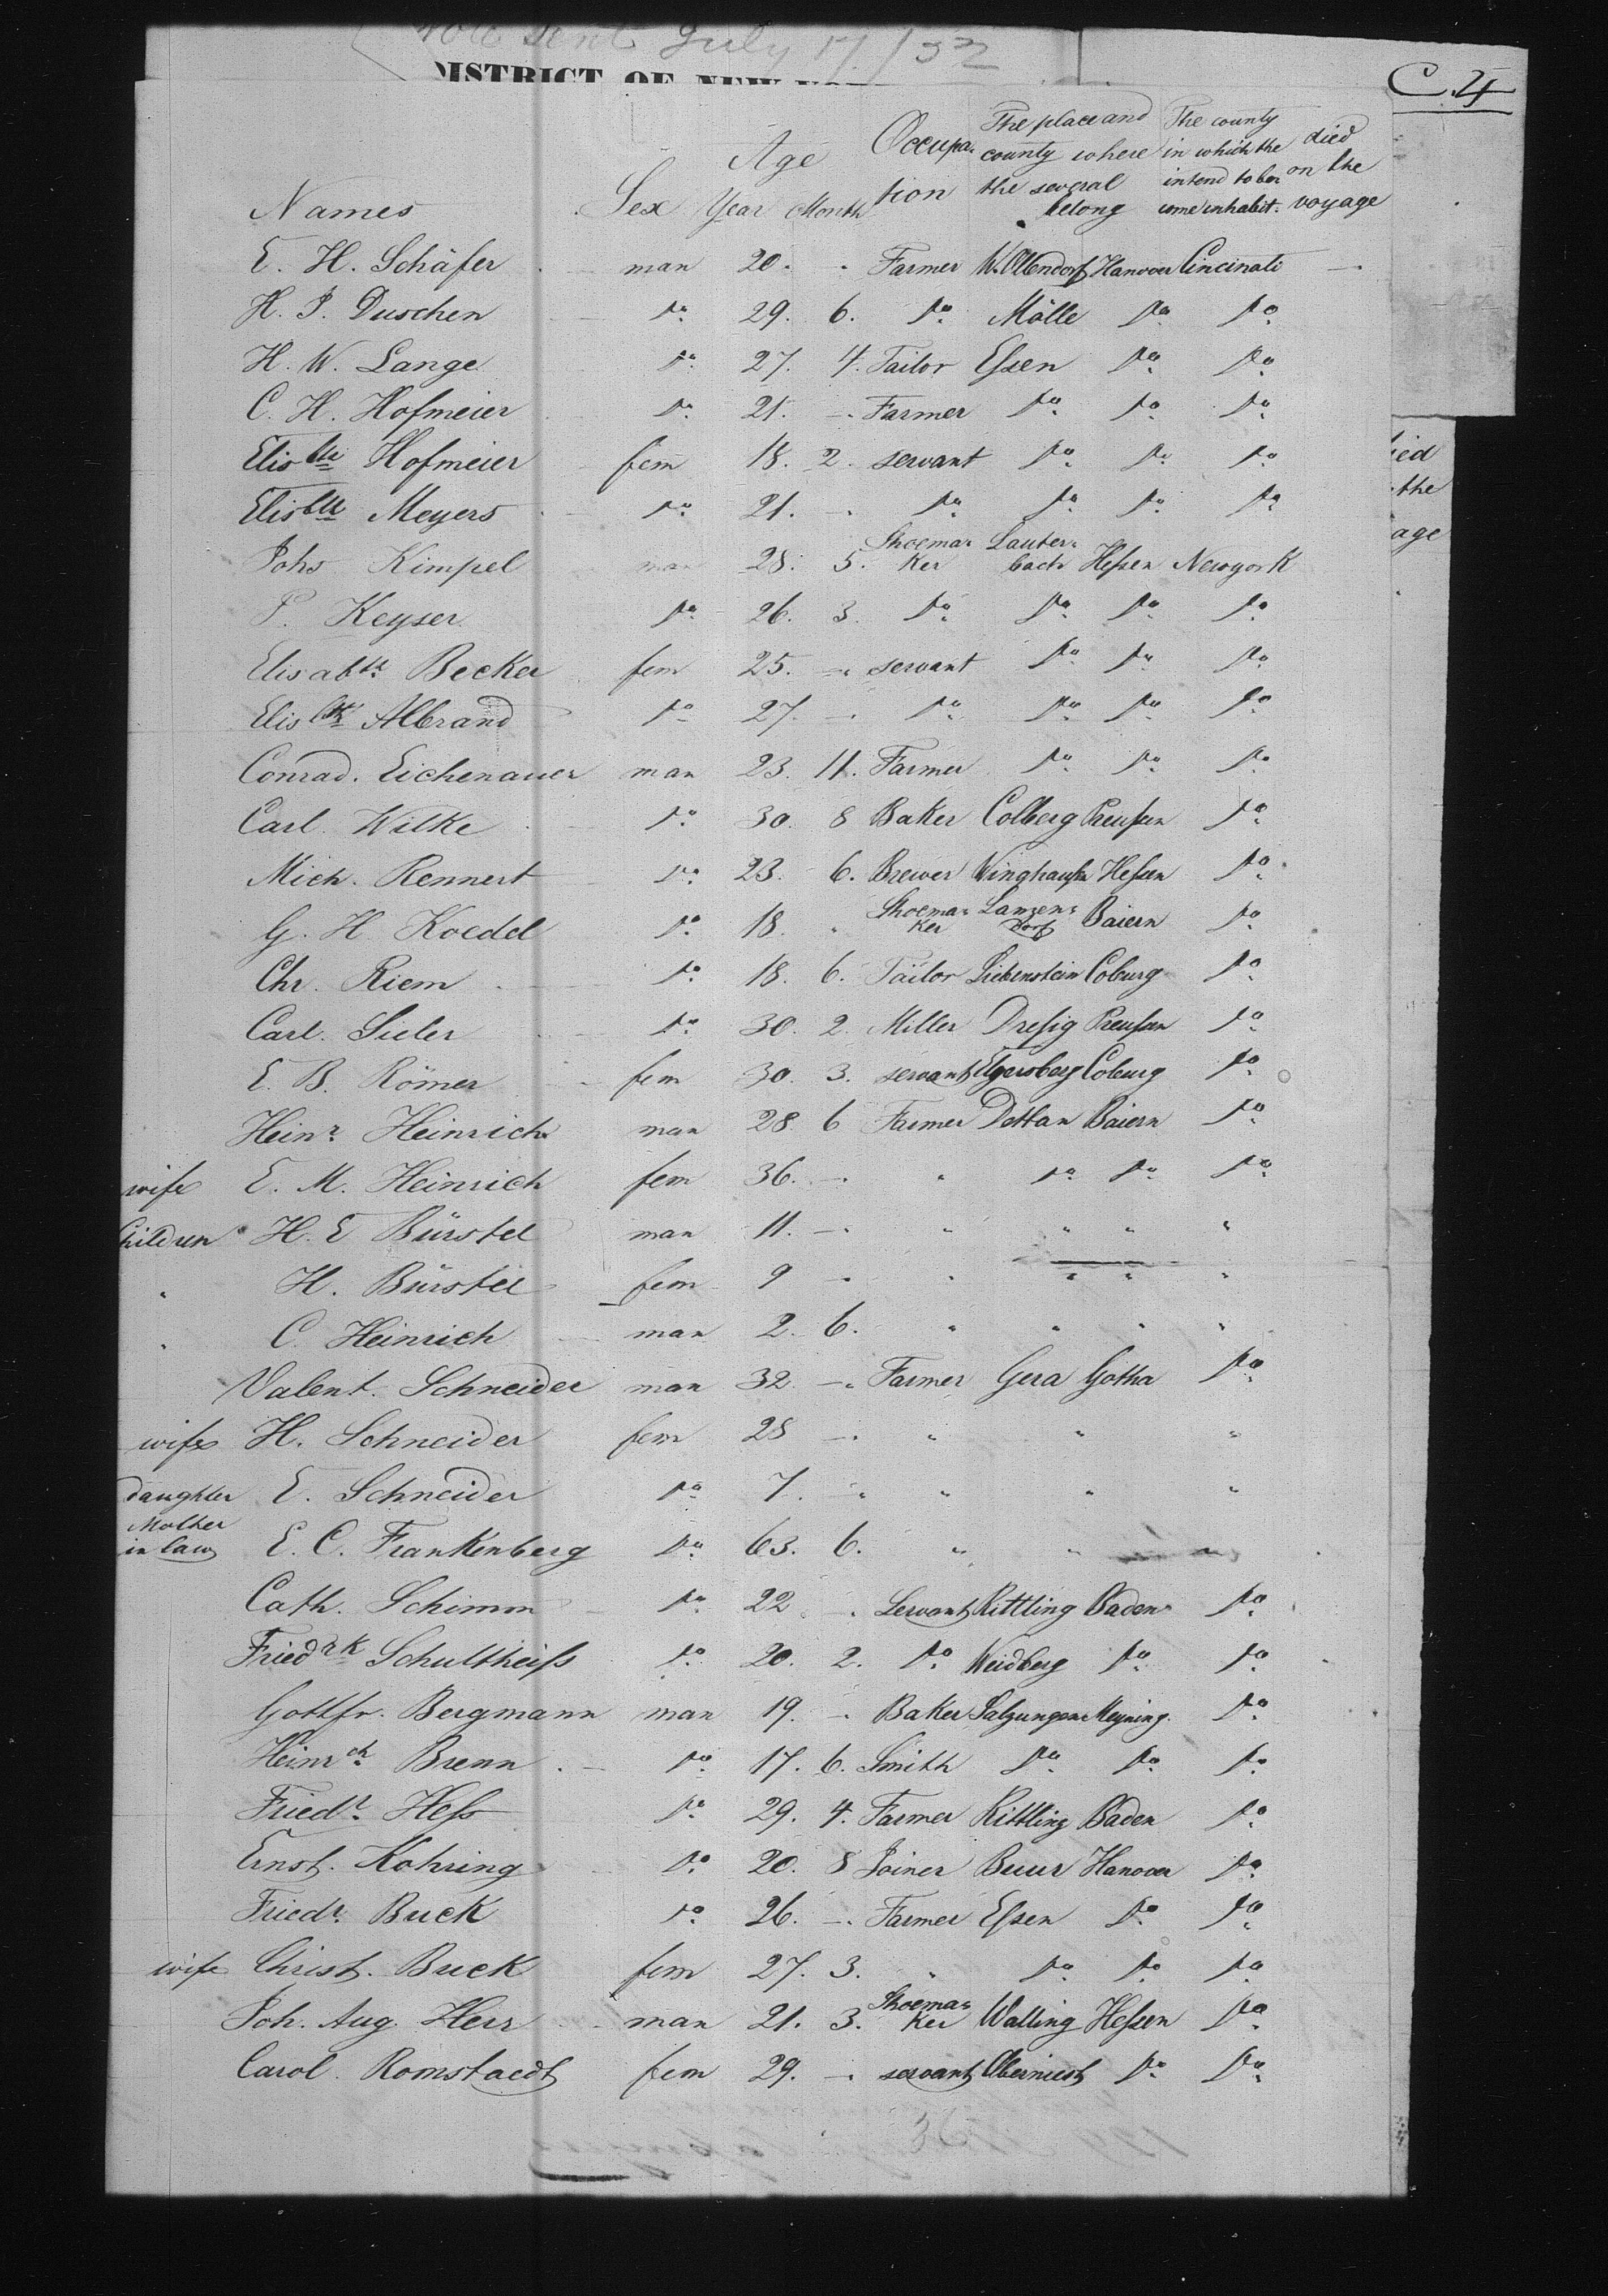 Note sent July 17/52
DISTRICT OF NEW YO
C. 4
Names Sex Age Year Month Occupa- tion The place and county where the several belong The county in which the intend to be come inhabit. died on the voyage
E. H. Schäfer man 20. " Farmer W. Ollendorf Hanover Cincinati —
H. J. Duschen do 29. 6. do Mölle do do
H. W. Lange do 27. 4. Tailor Essen do do
C. H. Hofmeier do 21. — Farmer do do do
Elisbth Hofmeier fem 18. 2. servant do do do
Elisbth Meyers do 21. — do do do do
Johs Kimpel man 28. 5. Shoema= ker Lauter= bach Hessen Newyork
P. Keyser do 26. 3. do do do do
Elisabth Becker fem 25. — servant do do do
Elisbth Albrand do 27. — do do do do
Conrad. Eichenauer man 23. 11. Farmer do do do
Carl Wilke do 30. 8 Baker Colberg Preussen do
Mich. Rennert do 23. 6. Brewer Winghausen Hessen do
G. H. Koedel do 18. " Shoema= ker Lanzen= dorf Baiern do
Chr. Riem do 18. 6. Tailor Liebenstein Coburg do
Carl. Suler do 30. 2. Miller Dresig Preussen do
E. B. Römer fem 30. 3. servant Elgersberg Coburg do
Heinr. Heinrich man 28. 6 Farmer Dettan Baiern do
wife E. M. Heinrich fem 36. — " do do do
Children H. E Bürstel man 11. — " " " "
" H. Bürstel fem 9 — " " " "
" C. Heinrich man 2. 6. " " " "
Valent. Schneider man 32 — Farmer Gera Gotha do
wife H. Schneider fem 28 — " " "
daughter E. Schneider do 7. " " " "
Mother in law E. C. Frankenberg do 63. 6. " " "
Cath. Schimm do 22 — Servant Kittling Baden do
Friedrk Schultheiss do 20. 2. do Weidberg do do
Gottfr. Bergmann man 19. — Baker Salzungen Meyning. do
Heinrch Brenn do 17. 6. Smith do do do
Friedr Hess do 29. 4. Farmer Kittling Baden do
Ernst. Kohring do 20. 8 Joiner Buur Hanover do
Friedr. Buck do 26. — Farmer Essen do do
wife Christ. Buck fem 27. 3. " do do do
Joh. Aug. Herr man 21. 3. Shoema= ker Walling Hessen do
Carol. Romstaedt fem 29. — servant Oberniest do do
36
ied
the
age